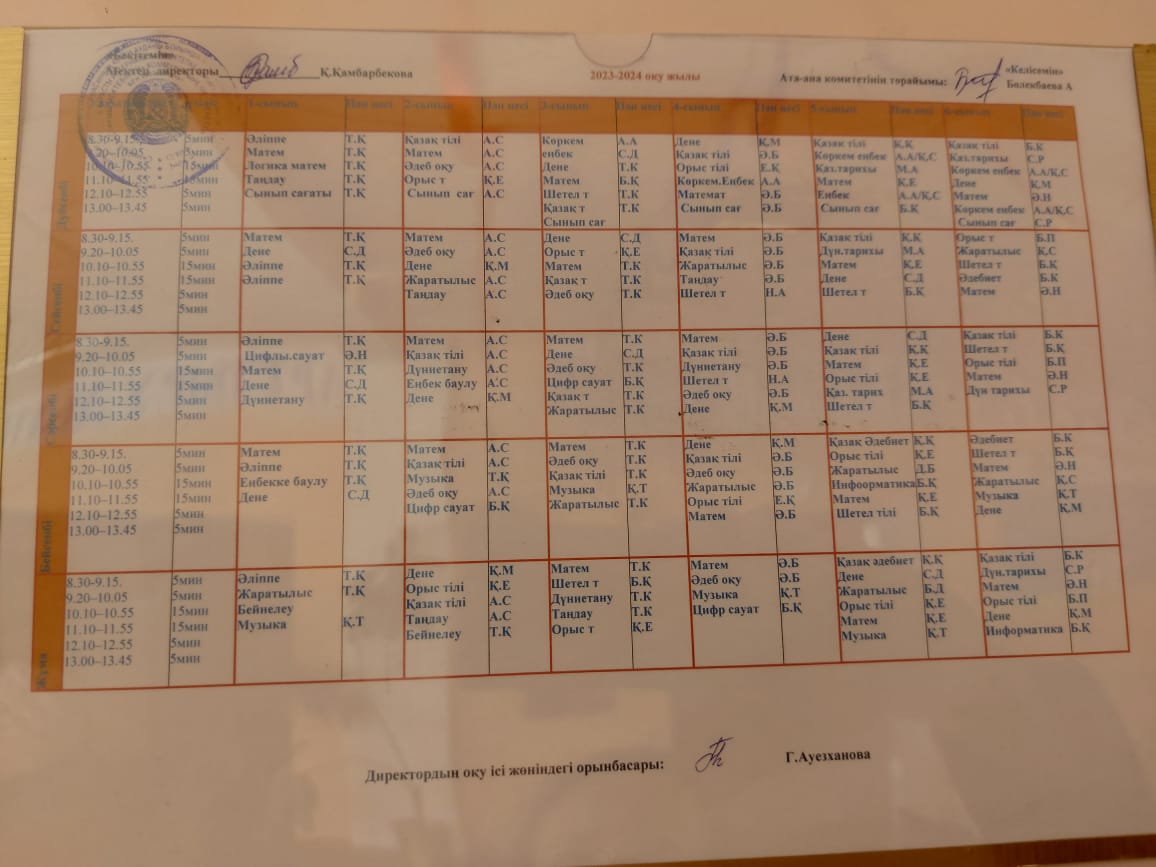 «Бекітемін» «Келісемін»
Мектеп директоры Қ.Қамбарбекова 2023-2024 оқу жылы Ата-ана комитетінің төрайымы: Бөлекбаева А
1-сынып Пән иесі 2-сынып Пән иесі 3-сынып Пән иесі 4-сынып Пән иесі 5-сынып Пән иесі 6-сынып Пән иесі
Дүйсенбі
8.30-9.15. 5мин Әліппе Т.Қ Қазақ тілі А.С Көркем А.А Дене Қ.М Қазақ тілі Қ.Қ Қазақ тілі Б.К
9.20-10.05 5мин Матем Т.Қ Матем А.С еңбек С.Д Қазақ тілі Ә.Б Көркем еңбек А.А/Қ.С Қаз.тарихы С.Р
10.10-10.55 15мин Логика матем Т.Қ Әдеб оқу А.С Дене Т.К Орыс тілі Е.Қ Қаз.тарихы М.А Көркем еңбек А.А/Қ.С
11.10-11.55 15мин Таңдау Т.Қ Орыс т Қ.Е Матем Б.Қ Көркем.Еңбек А.А Матем Қ.Е Дене Қ.М
12.10-12.55 5мин Сынып сағаты Т.Қ Сынып сағ А.С Шетел т Т.К Математ Ә.Б Еңбек А.А/Қ.С Матем Ә.Н
13.00-13.45 5мин Қазақ т Т.К Сынып сағ Ә.Б Сынып сағ Б.Қ Көркем еңбек А.А/Қ.С
Сынып сағ Сынып сағ С.Р
Сейсенбі
8.30-9.15. 5мин Матем Т.Қ Матем А.С Дене С.Д Матем Ә.Б Қазақ тілі Қ.Қ Орыс т Б.П
9.20-10.05 5мин Дене С.Д Әдеб оқу А.С Орыс т Қ.Е Қазақ тілі Ә.Б Дүн.тарихы М.А Жаратылыс Қ.С
10.10–10.55 15мин Әліппе Т.Қ Дене Қ.М Матем Т.К Жаратылыс Ә.Б Матем Қ.Е Шетел т Б.Қ
11.10–11.55 15мин Әліппе Т.Қ Жаратылыс А.С Қазақ т Т.К Таңдау Ә.Б Дене С.Д Әдебиет Б.К
12.10–12.55 5мин Таңдау А.С Әдеб оқу Т.К Шетел т Н.А Шетел т Б.Қ Матем Ә.Н
13.00–13.45 5мин
Сәрсенбі
8.30-9.15. 5мин Әліппе Т.Қ Матем А.С Матем Т.К Матем Ә.Б Дене С.Д Қазақ тілі Б.К
9.20–10.05 5мин Цифлы.сауат Ә.Н Қазақ тілі А.С Дене С.Д Қазақ тілі Ә.Б Қазақ тілі Қ.Қ Шетел т Б.Қ
10.10–10.55 15мин Матем Т.Қ Дүниетану А.С Әдеб оқу Т.К Дүниетану Ә.Б Матем Қ.Е Орыс тілі Б.П
11.10–11.55 15мин Дене С.Д Еңбек баулу А.С Цифр сауат Б.Қ Шетел т Н.А Орыс тілі Қ.Е Матем Ә.Н
12.10–12.55 5мин Дүниетану Т.Қ Дене Қ.М Қазақ т Т.К Әдеб оқу Ә.Б Қаз. тарих М.А Дүн тарихы С.Р
13.00–13.45 5мин Жаратылыс Т.К Дене Қ.М Шетел т Б.Қ
Бейсенбі
8.30-9.15. 5мин Матем Т.Қ Матем А.С Матем Т.К Дене Қ.М Қазақ Әдебиет Қ.Қ Әдебиет Б.К
9.20–10.05 5мин Әліппе Т.Қ Қазақ тілі А.С Әдеб оқу Т.К Қазақ тілі Ә.Б Орыс тілі Қ.Е Шетел т Б.Қ
10.10–10.55 15мин Еңбекке баулу Т.Қ Музыка Т.Қ Қазақ тілі Т.К Әдеб оқу Ә.Б Жаратылыс Д.Б Матем Ә.Н
11.10–11.55 15мин Дене С.Д Әдеб оқу А.С Музыка Қ.Т Жаратылыс Ә.Б Инфоорматика Б.Қ Жаратылыс Қ.С
12.10–12.55 5мин Цифр сауат Б.Қ Жаратылыс Т.К Орыс тілі Е.Қ Матем Қ.Е Музыка Қ.Т
13.00–13.45 5мин Матем Ә.Б Шетел тілі Б.Қ Дене Қ.М
Жұма
8.30-9.15. 5мин Әліппе Т.Қ Дене Қ.М Матем Т.К Матем Ә.Б Қазақ әдебиет Қ.Қ Қазақ тілі Б.К
9.20–10.05 5мин Жаратылыс Т.Қ Орыс тілі Қ.Е Шетел т Б.Қ Әдеб оқу Ә.Б Дене С.Д Дүн.тарихы С.Р
10.10–10.55 15мин Бейнелеу Қазақ тілі А.С Дүниетану Т.К Музыка Қ.Т Жаратылыс Б.Д Матем Ә.Н
11.10–11.55 15мин Музыка Қ.Т Таңдау А.С Таңдау Т.К Цифр сауат Б.Қ Орыс тілі Қ.Е Орыс тілі Б.П
12.10–12.55 5мин Бейнелеу Т.Қ Орыс т Қ.Е Матем Қ.Е Дене Қ.М
13.00–13.45 5мин Музыка Қ.Т Информатика Б.Қ
Директордын оқу ісі жөніндегі орынбасары: Г.Ауезханова